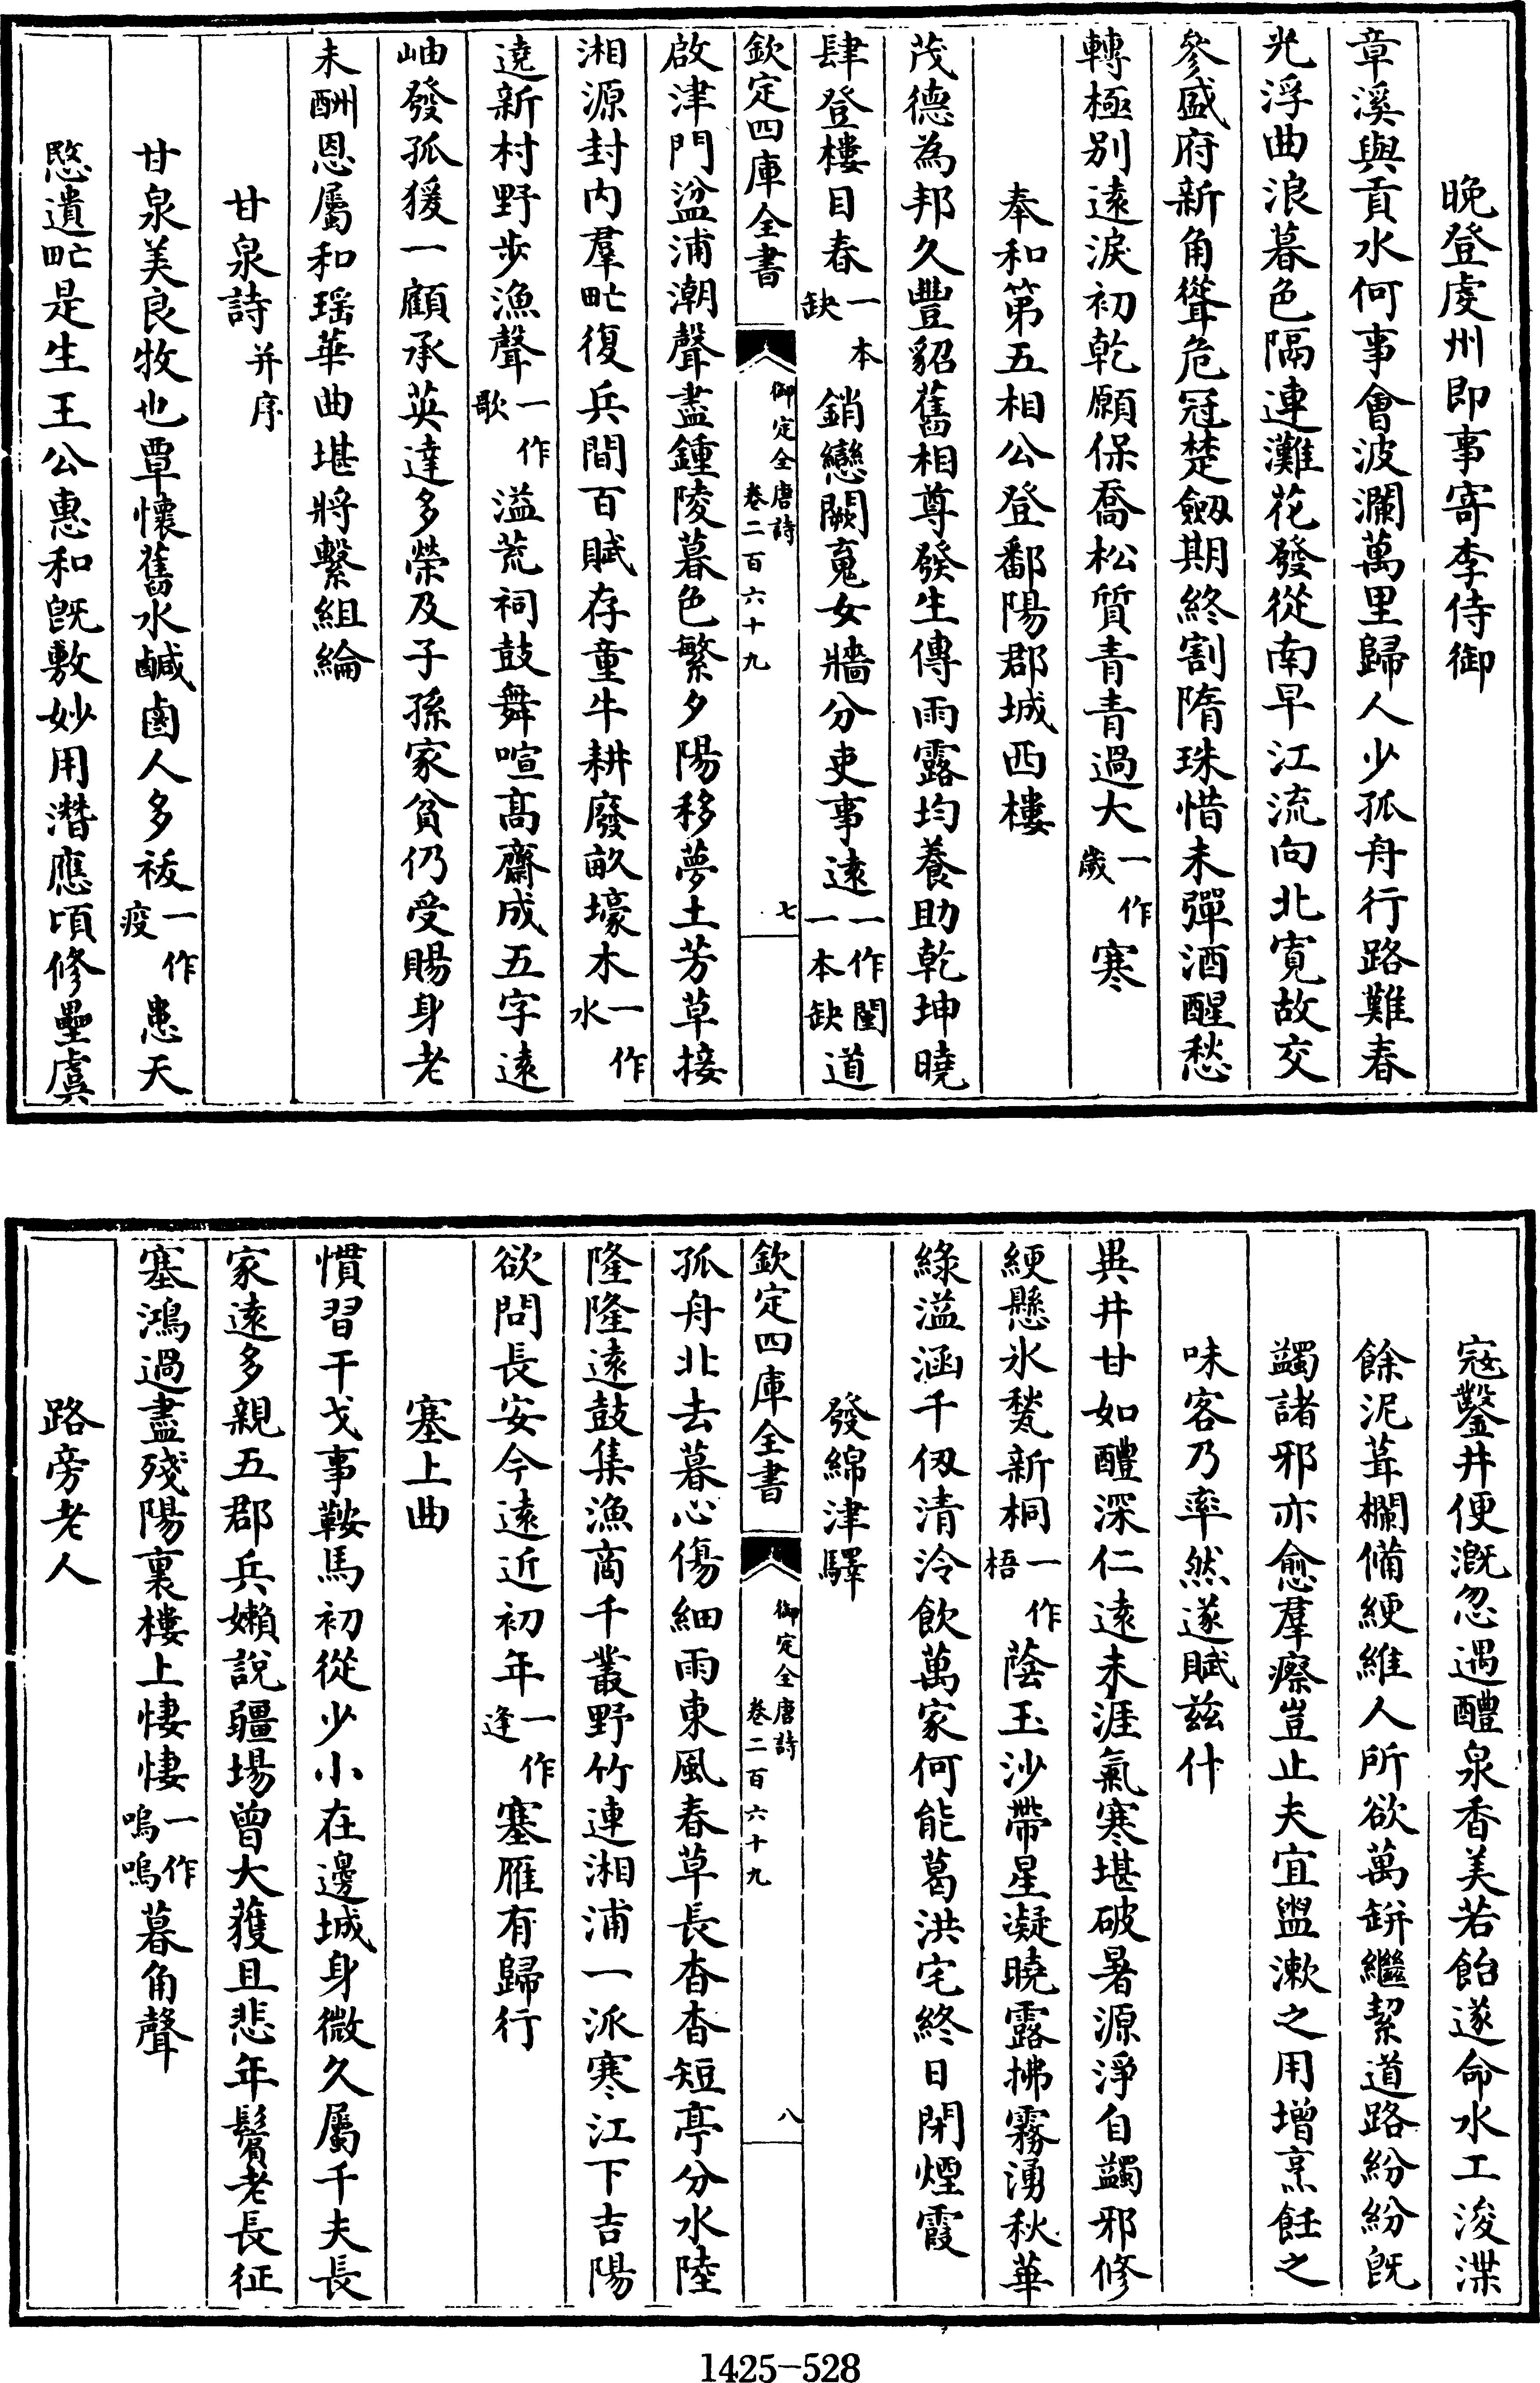 晩登䖍州即事寄李侍御
章溪與貢水何事會波瀾萬里歸人少孤舟行路難春
光浮曲浪暮色隔連灘花發從南早江流向北寛故交
參盛府新角聳危冠楚劔期終割隋珠惜未彈酒醒愁
轉極别遠淚初乾願保喬松質青青過大一作歲寒
奉和第五相公登鄱陽郡城西樓
茂德為邦久豐貂舊相尊發生傳雨露均養助乾坤曉
肆登樓目春一本缺銷戀闕䰟女牆分吏事遠一作閨一本缺道
欽定四庫全書
御定全唐詩
卷二百六十九
七
啟津門湓浦潮聲盡鍾陵暮色繁夕陽移夢土芳草接
湘源封内羣甿復兵間百賦存童牛耕廢畝壕木一作水
遶新村野步漁聲一作歌溢荒祠鼓舞喧髙齋成五字逺
岫發孤猨一顧承英達多榮及子孫家貧仍受賜身老
未酬恩屬和瑶華曲堪將繫組綸
甘泉詩并序
甘泉美良牧也覃懷舊水鹹鹵人多祓一作疫患天
愍遺甿是生王公惠和旣敷妙用潛應頃修壘虞
宼鑿井便溉忽遇醴泉香美若飴遂命水工浚渫
餘泥葺欄備綆維人所欲萬缾繼挈道路紛紛旣
蠲諸邪亦愈羣瘵豈止夫宜盥漱之用增烹飪之
味客乃率然遂賦兹什
異井甘如醴深仁遠未涯氣寒堪破暑源淨自蠲邪修
綆懸氷甃新桐一作梧蔭玉沙帶星凝曉露拂霧湧秋華
綠溢涵千仭清泠飲萬家何能葛洪宅終日閉煙霞
發綿津驛
欽定四庫全書
御定全唐詩
卷二百六十九
八
孤舟北去暮心傷細雨東風春草長杳杳短亭分水陸
隆隆遠鼓集漁商千叢野竹連湘浦一派寒江下吉陽
欲問長安今遠近初年一作逢塞雁有歸行
塞上曲
慣習干戈事鞍馬初從少小在邊城身微久屬千夫長
家遠多親五郡兵嬾說疆場曽大獲且悲年鬢老長征
塞鴻過盡殘陽裏樓上悽悽一作嗚嗚暮角聲
路旁老人
1425-528